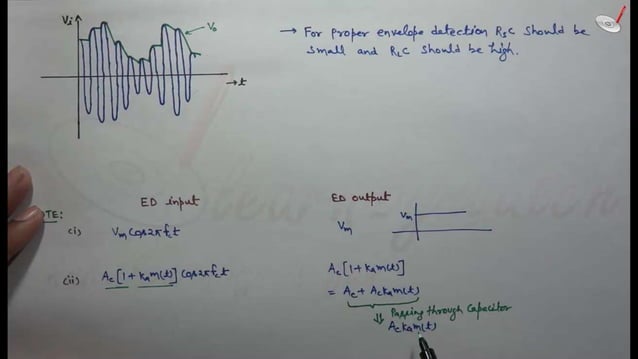 Vi
Vo
→ t
→ For proper envelope detection RsC should be
small and RLC should be high.
ED input
ED output
NOTE:
(i) Vm Cos2πfct
Vm
Vm
(ii) Ac[1+kam(t)] Cos2πfct
Ac[1+kam(t)]
= Ac + Ackam(t)
⇓ Passing through Capacitor
Ackam(t)